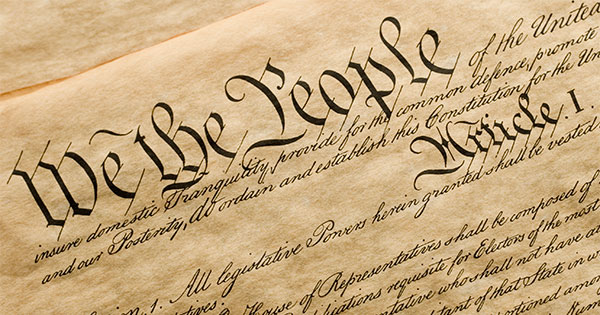 We the People of the United
insure domestic Tranquility, provide for the common defence, promote
and our Posterity, do ordain and establish this Constitution for the Un
Article. I.
ion. 1. All legislative Powers herein granted shall be vested
tives.
House of Representatives shall be composed of
ifications requisite for Electors of the most
ntative who shall not have
tant of that State in w
rtioned among